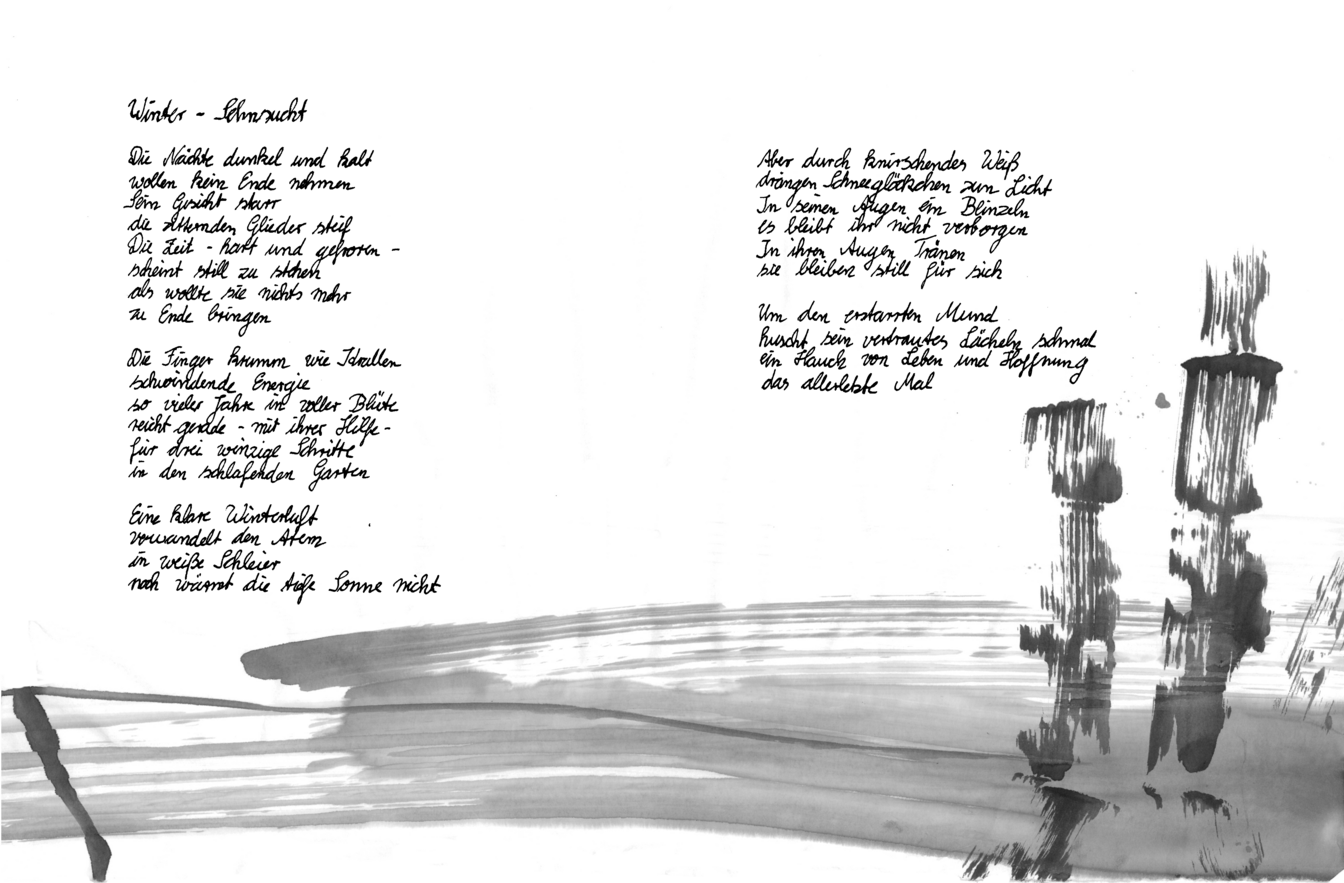 Winter - Sehnsucht
Die Nächte dunkel und kalt
wollen kein Ende nehmen
Sein Gesicht starr
die zitternden Glieder steif
Die Zeit - hart und gefroren -
scheint still zu stehen
als wollte sie nichts mehr
zu Ende bringen
Die Finger krumm wie Krallen
schwindende Energie
so vieler Jahre in voller Blüte
reicht gerade - mit ihrer Hilfe -
für drei winzige Schritte
in den schlafenden Garten
Eine klare Winterluft
verwandelt den Atem
in weiße Schleier
noch wärmt die tiefe Sonne nicht
Aber durch knirschendes Weiß
drängen Schneeglöckchen zum Licht
In seinen Augen ein Blinzeln
es bleibt ihr nicht verborgen
In ihren Augen Tränen
sie bleiben still für sich
Um den erstarrten Mund
huscht sein vertrautes Lächeln schmal
ein Hauch von Leben und Hoffnung
das allerletzte Mal